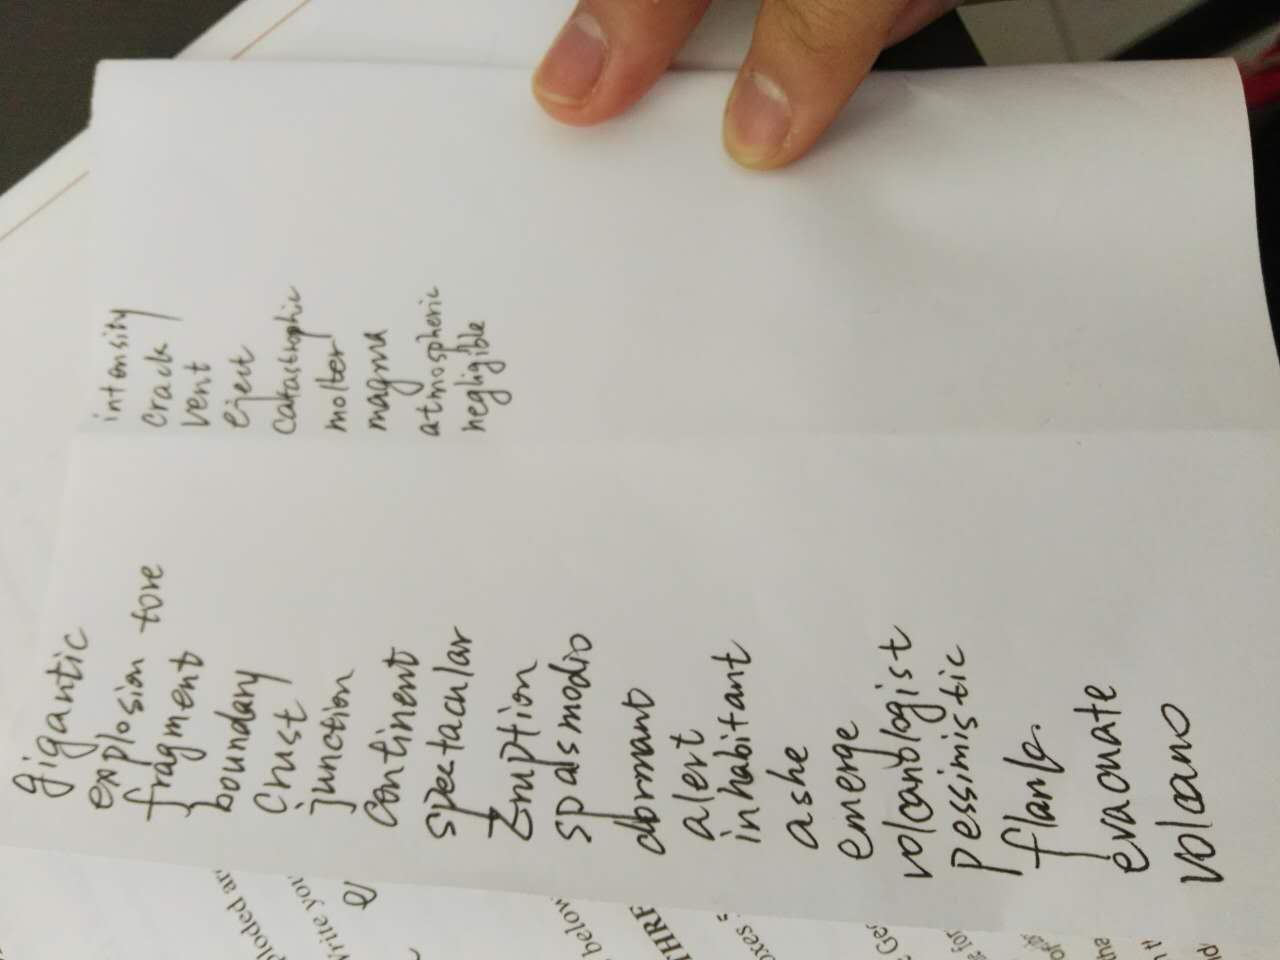 gigantic
explosion tore
fragment
boundary
crust
junction
continent
spectacular
Eruption
spasmodio
dormant
alert
inhabitant
ashe
emerge
volcanologist
pessimistic
flank
evacuate
volcano
intensity
crack
vent
eject
catastrophic
molter
magma
atmospheric
negligible
ploded ar
write you
below
THRE
oxes
Ge
e for
the